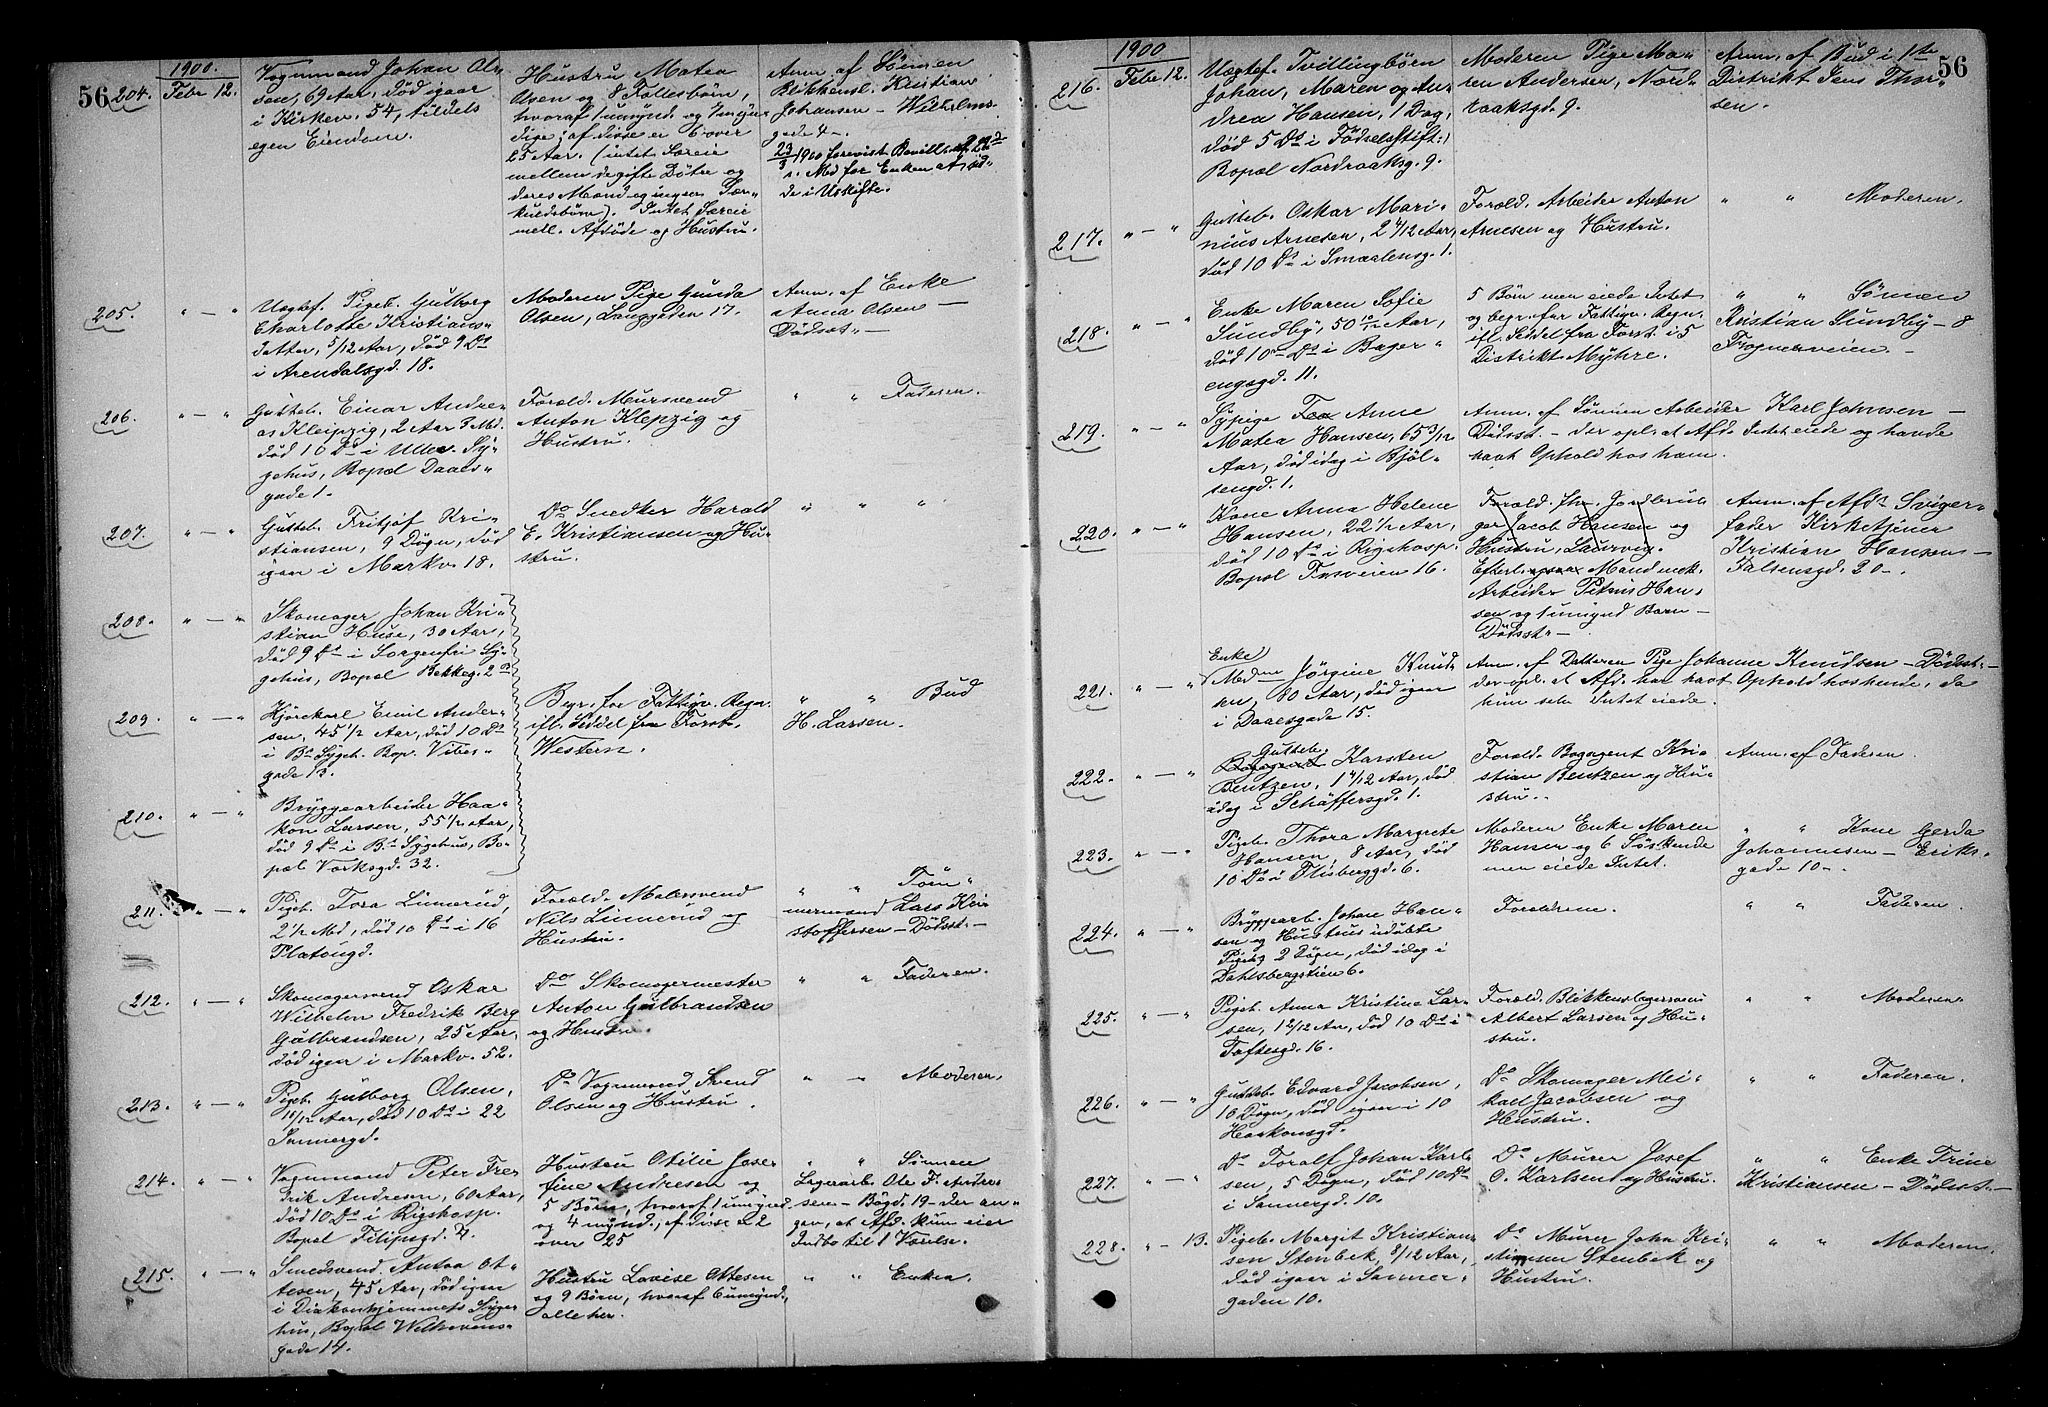 56
1900.
204. Febr 12. Vognmand Johan Ol-
sen, 69 Aar, død igaar
i Kirkev. 54, tildels
egen Eiendom.
Hustru Matea
Olsen og 8 Fællesbørn,
hvoraf 1 umynd. og 7 myn-
dige; af disse er 6 over
25 Aar. (intet Særeie
mellem de gifte Døtre og
deres Mænd og ingen Sær-
kuldsbørn). Intet Særeie
mell. Afdøde og Hustru.
Anm. af Sønnen
Blikkensl. Kristian
Johansen - Wilhelms-
gade 4 -.
23/3 1900 forevist Bevill.
s. Md for Enken at sid-
de i Uskifte.
205. " - " Uægtef. Pigeb. Gulborg
Charlotte Kristians-
datter, 5/12 Aar, død 9 Ds
i Arendalsgd. 18.
Moderen Pige Gunda
Olsen, Langgaden 17.
Anm. af Enke
Anna Olsen -
Dødsst. -
206. " - " Gutteb. Einar Andre-
as Kleipzig, 2 Aar 3 Md.
død 10 Ds i Ullev. Sy-
gehus, Bopæl Daaes-
gade 1.
Foræld. Mursvend
Anton Klepzig og
Hustru.
" " Faderen.
207. " - " Gutteb. Fritjof Kri-
stiansen, 9 Døgn, død
igaar i Markv. 18.
Do Snedker Harald
E. Kristiansen og Hu-
stru.
" " "
208. " - " Skomager Johan Kri-
stian Huse, 30 Aar,
død 9 Ds i Sorgenfri Sy-
gehus, Bopæl Bekkeg. 2
209. " - " Kjørekarl Emil Ander-
sen, 45 1/2 Aar, død 10 Ds
i Bs Sygeh. Bop. Vibes-
gade 13.
Begr. for Fattigv. Regn.
ifl. Seddel fra Forst.
Western.
" " Bud
H. Larsen.
210. " - " Bryggearbeider Haa-
kon Larsen, 55 1/2 Aar,
død 9 Ds i Bs Sygehus, Bo-
pæl Verksgd. 32.
211. " - " Pigeb. Tora Linnerud,
2 1/2 Md, død 10 Ds i 16
Platougd.
Foræld. Malersvend
Nils Linnerud og
Hustru.
" " Tøm-
mermand Lars Kri-
stoffersen - Dødsst. -
212. " - " Skomagersvend Oskar
Wilhelm Fredrik Berg
Gulbrandsen, 25 Aar,
død igaar i Markv. 52.
Do Skomagermester
Anton Gulbrandsen
og Hustru.
" " Faderen.
213. " - " Pigeb. Gulborg Olsen,
10/12 Aar, død 10 Ds i 22
Sannergd.
Do Vognmand Svend
Olsen og Hustru.
" " Moderen.
214. " - " Vognmand Peter Fre-
drik Andresen, 60 Aar,
død 10 Ds i Rigshosp.
Bopæl Filipsgd. 4.
Hustru Otilie Jose-
fine Andresen og
5 Børn, hvoraf 1 umynd.
og 4 mynd., af disse 2
over 25
" " Sønnen
Lagerarb. Ole F. Andre-
sen - Bogd. 19 - der an-
gav, at Afd. kun eier
Indbo til 1 Værelse.
215. " - " Smedsvend Anton Ot-
tesen, 45 Aar, død igaar
i Diakonhjemmets Syge-
hus, Bopæl Welhavens-
gade 14.
Hustru Lovise Ottesen
og 9 Børn, hvoraf 6 umynd.,
alle her.
" " Enken.
56
1900
216. Febr 12. Uægtef. Tvillingbørn
Johan, Maren og An-
drea Hansen, 1 Dag,
død 5 Ds i Fødselsstift.
Bopæl Nordraaksg. 9.
Moderen Pige Ma-
ren Andersen, Nord-
raaksgd. 9.
Anm. af Bud i 1ste
Distrikt Jens Thor-
sen.
217. " - " Gutteb. Oskar Mari-
nius Arnesen, 2 4/12 Aar,
død 10 Ds i Smaalensg. 1.
Foræld. Arbeider Anton
Arnesen og Hustru.
" " Moderen.
218. " - " Enke Maren Sofie
Sundby, 50 10/12 Aar,
død 10 Ds i Bager-
engsgd. 11.
5 Børn men eiede Intet
og begr. for Fattigv. Regn.
ifl. Seddel fra Forst. i 5
Distrikt Myhre.
" " Sønnen
Kristian Sundby - 8
Frognerveien. -
219. " - " Sypige Anne
Matea Hansen, 65 3/12
Aar, død idag i Bjøl-
sengd. 1.
Anm. af Sønnen Arbeider Karl Johnsen -
Dødsst. - der opl. at Afd. Intet eiede og havde
havt Ophold hos ham.
220. " - " Kone Anna Helene
Hansen, 22 1/2 Aar,
død 10 Ds i Rigshosp.
Bopæl Fusveien 16.
Foræld. fhv. Jordbru-
ger Jacob Hansen og
Hustru, Laurvig.
Efterl. Mand
Arbeider Petrus Han-
sen og 1 umynd Barn -
Dødsst -
Anm. af Afdts Sviger-
fader Kirketjener
Kristian Hansen -
Falsensgd. 20 -.
221. " - " Enke
Madme Jørgine Knud-
sen, 80 Aar, død igaar
i Daaesgade 15.
Anm. af Datteren Pige Johanne Knudsen - Dødsst. -
der opl. at Afd. har havt Ophold hos hende, da
hun selv Intet eiede.
222. " - " Gutteb.
Bogagent Karsten
Bentzen, 1 4/12 Aar, død
idag i Schäffersgd. 1.
Foræld. Bogagent Kri-
stian Bentzen og Hu-
stru.
Anm. af Faderen.
223. " - " Pigeb. Thora Margrete
Hansen, 8 Aar, død
10 Ds i Flisberggd. 6.
Moderen Enke Maren
Hansen og 6 Søskende
men eiede Intet.
" " Kone Gerda
Johannesen - Eriks-
gade 10 -.
224. " - " Bryggearb. Johan Han-
sen og Hustrus udøbte
Pigeb. 2 Døgn, død idag i
Dahlsbergstien 6.
Forældrene.
" " Faderen.
225. " - " Pigeb. Anna Kristine Lar-
sen, 1 2/12 Aar, død 10 Ds i
Toftesgd. 16.
Foræld. Blikkenslagersvend
Albert Larsen og Hu-
stru.
" " Moderen.
226. " - " Gutteb. Edvard Jacobsen,
10 Døgn, død igaar i 10
Haakonsgd.
Do Skomager Mei-
kael Jacobsen og
Hustru.
" " Faderen.
227. " - " Do Toralf Johan Karl-
sen, 5 Døgn, død 10 Ds
i Sannergd. 10.
Do Murer Josef
O. Karlsen og Hustru.
" " Enke Trine
Kristiansen - Dødsst. -
228. " - 13. Pigeb. Margit Kristian-
sen Stenbek, 8/12 Aar,
død igaar i Sanner-
gaden 10.
Do Murer John Kri-
stiansen Stenbek og
Hustru.
" " Moderen.